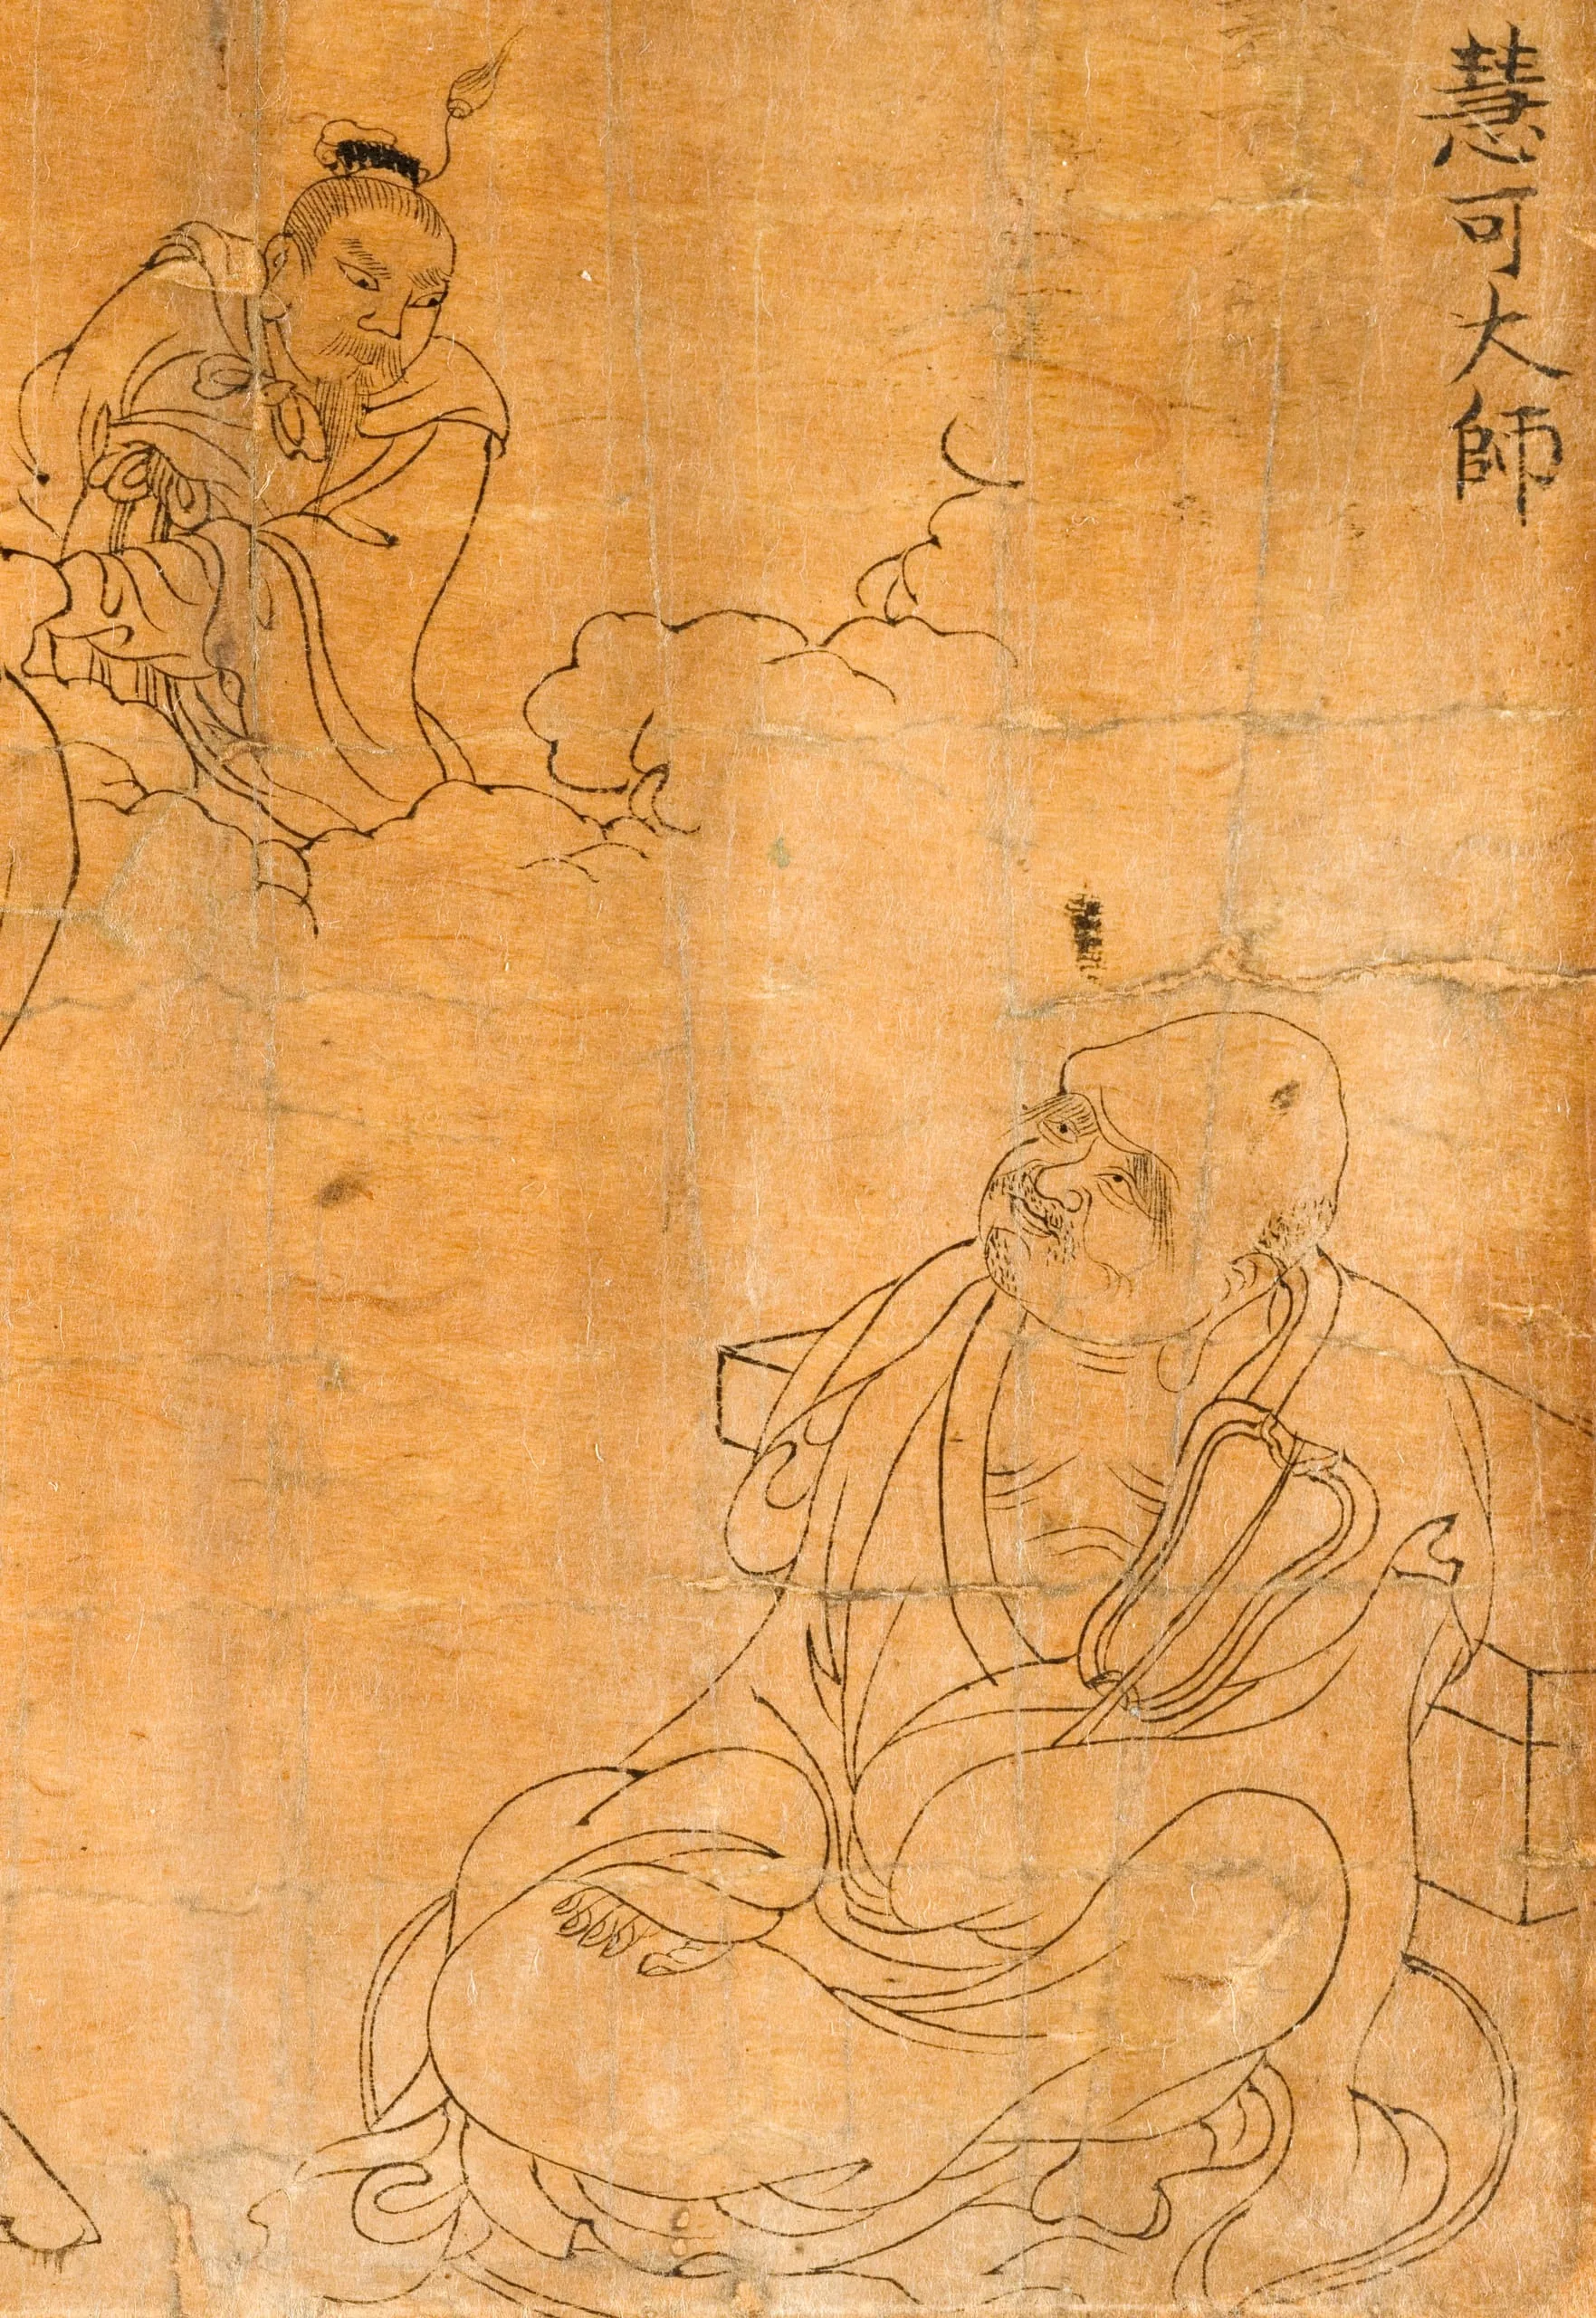 慧可大師